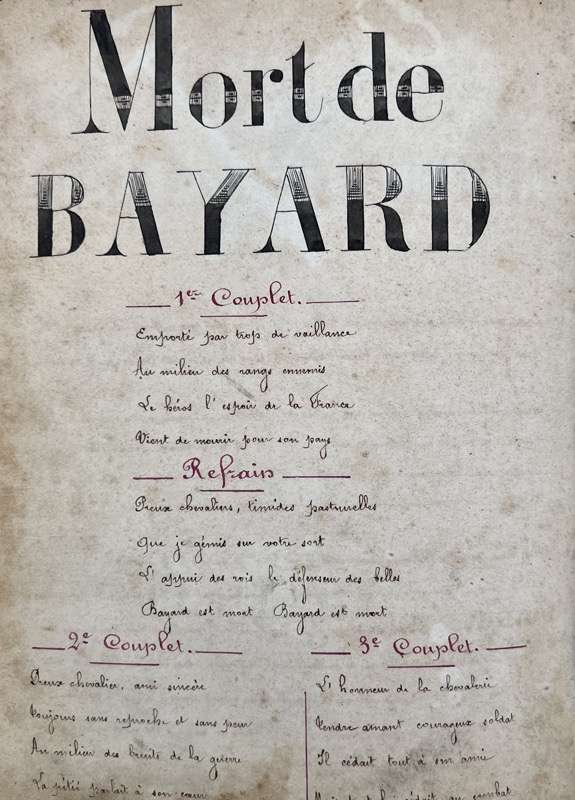 Mort de
BAYARD
1er Couplet.
Emporté par trop de vaillance
Au milieu des rangs ennemis
Le héros l'espoir de la France
Vient de mourir pour son pays
Refrain
Preux chevaliers, timides pasturelles
Que je gémis sur votre sort
L'appui des rois le défenseur des belles
Bayard est mort Bayard est mort
2e Couplet.
Preux chevalier, ami sincère
Toujours sans reproche et sans peur
Au milieu des bruits de la guerre
La pitié parlait à son cœur
3e Couplet.
L'honneur de la chevalerie
Tendre amant courageux soldat
Il cédait tout à son amie
combat